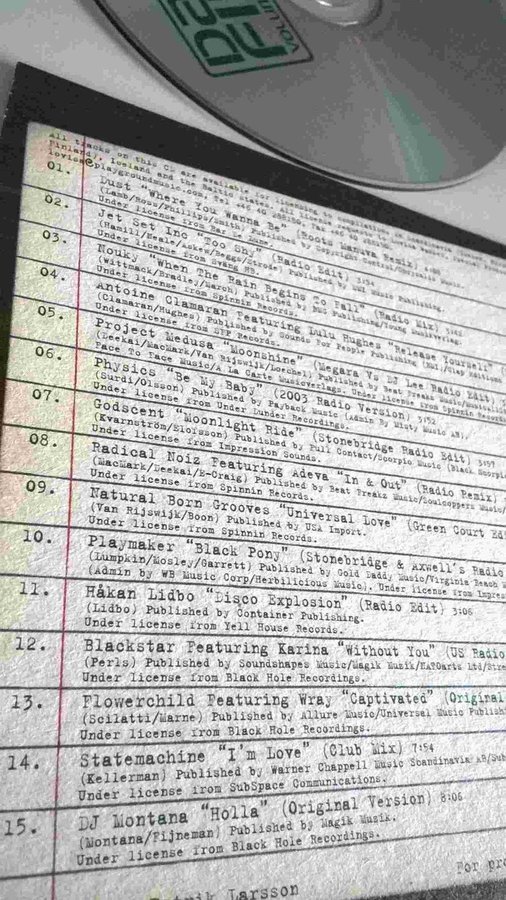 VOLUM
All tracks on this CD are available for licensing to compilation
Finland), Iceland and the Baltic states. All
lovisa@playgroundmusic.com, Tel
01. Dust "Where You Wanna Be" (Roots Manuva Remix)
(Lamb/Ross/Phillips/Smith) Published by Copyright Control/Chrysalis Music.
Under license from Bar De Lune.
02. Jet Set Inc "Too Shy" (Radio Edit) 3:54
(Hamill/Neale/Askew/Beggs/Strode) Published by EMI Music Publishing.
Under license from Sväng HB.
03. Nouky "When The Rain Begins To Fall" (Radio Mix)
(Wittmack/Bradley/March) Published by BMG Publishing/Young Musikverlag.
Under license from Spinnin Records.
04. Antoine Clamaran Featuring Lulu Hughes "Release Yourself"
(Clamaran/Hughes) Published by Sounds For People Publishing
Under license from SFP Records.
05. Project Medusa "Moonshine" (Megara Vs Dat Lee Radio Edit)
(Deekai/MacMark/Van Rijswijk/Loechel) Published by Beat Freakz Music/
Face To Face Music/A La Carte Musicverlags. Under license from Spinnin Records.
06. Physics "Be My Baby" (2003 Radio Version) 3:52
(Surdi/Olsson) Published by Payback Music (Admin By Misty Music AB).
Under license from Under Lunder Recordings.
07. Godscent "Moonlight Ride" (Stonebridge Radio Edit) 3:57
(Kvarnström/Elofsson) Published by Full Contact/Scorpio Music (Black Scorpio
Under license from Impression Sounds.
08. Radical Noiz Featuring Adeva "In & Out" (Radio Remix)
(MacMark/Deekai/E-Craig) Published by Beat Freakz Music/Soulcoppers Music/
Under license from Spinnin Records.
09. Natural Born Grooves "Universal Love" (Green Court Ed
(Van Rijswijk/Boon) Published by USA Import.
Under license from Spinnin Records.
10. Playmaker "Black Pony" (Stonebridge & Axwell's Radio
(Lumpkin/Mosley/Garrett) Published by Gold Daddy Music/Virginia Beach
(Admin by WB Music Corp/Herbilicious Music). Under license from Impres
11. Håkan Lidbo "Disco Explosion" (Radio Edit) 3:06
(Lidbo) Published by Container Publishing.
Under license from Yell House Records.
12. Blackstar Featuring Karina "Without You" (US Radio
(Perls) Published by Soundshapes Music/Magik Muzik/KAPGarts Ltd/Stre
Under license from Black Hole Recordings.
13. Flowerchild Featuring Wray "Captivated" (Original
(Scilatti/Marne) Published by Allure Music/Universal Music Publish
Under license from Black Hole Recordings.
14. Statemachine "I'm Love" (Club Mix) 7:54
(Kellerman) Published by Warner Chappell Music Scandinavia AB/Sub
Under license from SubSpace Communications.
15. DJ Montana "Holla" (Original Version) 8:06
(Montana/Fijneman) Published by Magik Muzik.
Under license from Black Hole Recordings.
For pro
Larsson